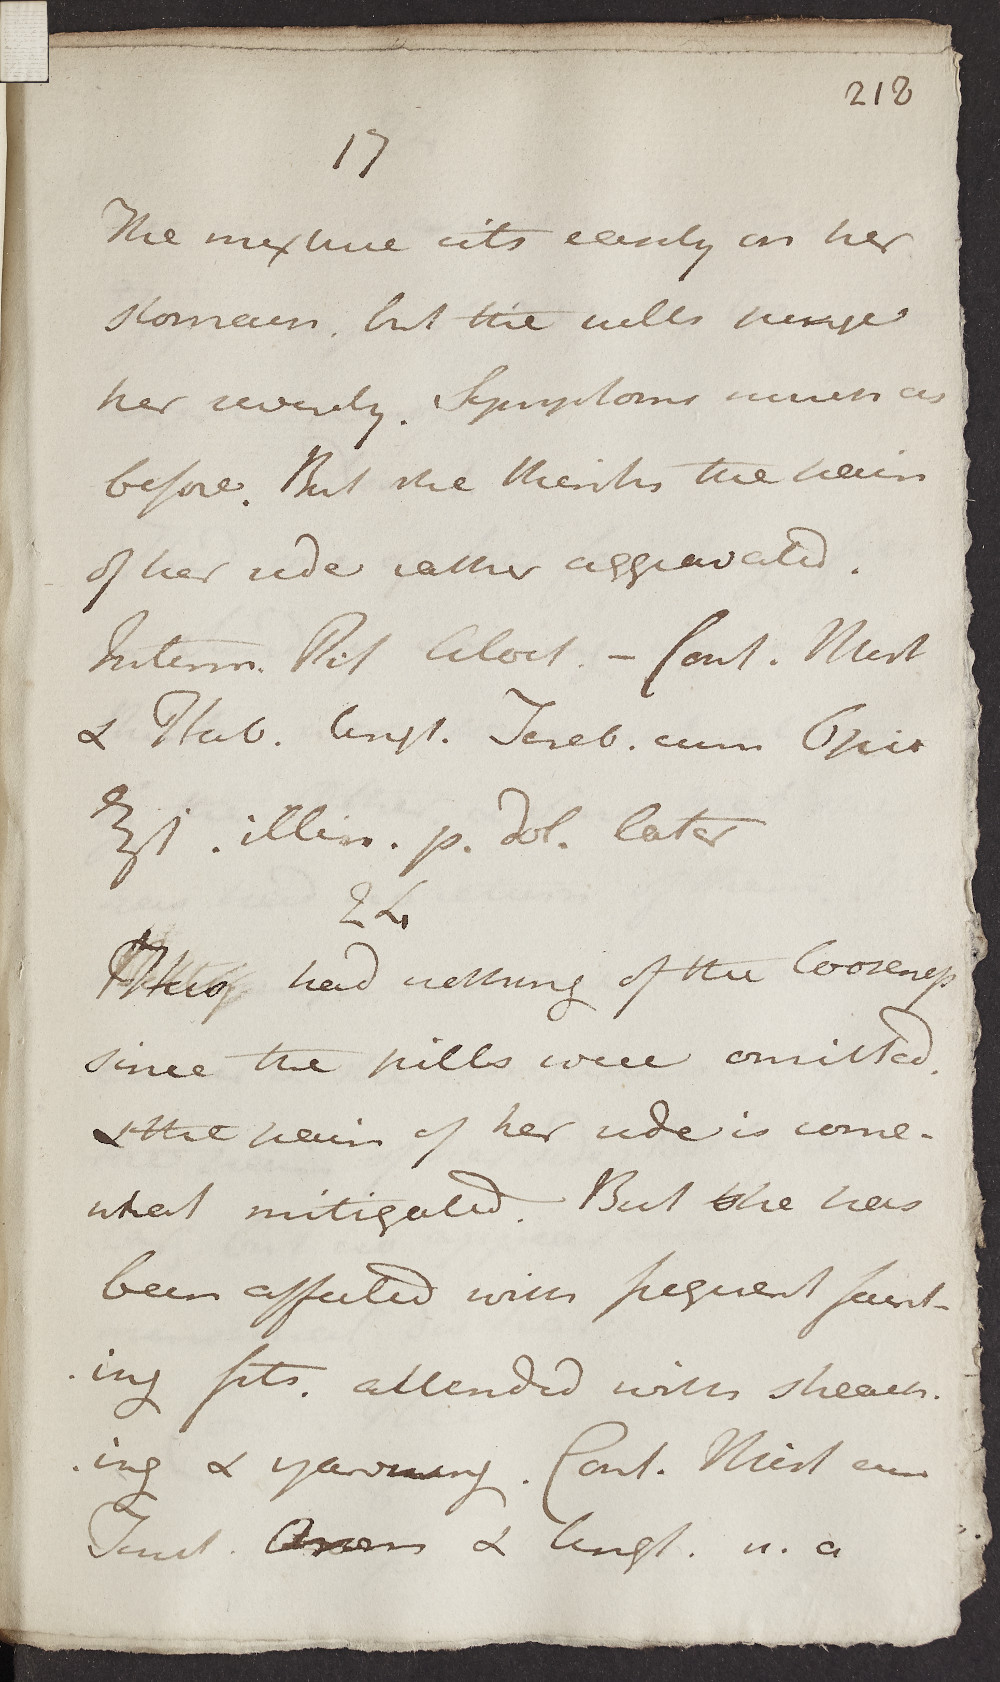 218
17
The mixture sits easily on her
stomach, but the pills purge
her severely. Symptoms much as
before. But she thinks the pain
of her side rather aggravated.
Interm. Pil Aloet. - Cont. Mist
& Hab. Ungt. Tereb. cum Opio
℥j. illin. p. dol. later
24
had nothing of the looseness
since the pills were omitted,
& the pain of her side is some-
what mitigated. But she has
been affected with frequent faint-
ing fits, attended with streach-
ing & yawning. Cont. Mist cum
Tinct. & Ungt. u. a